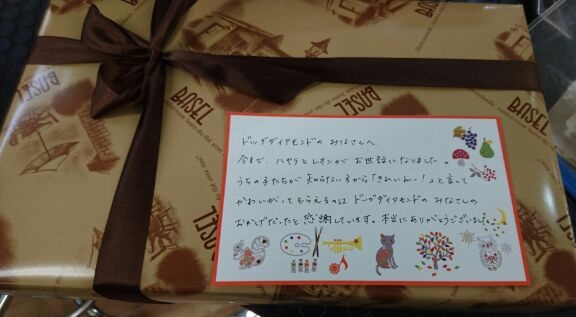 BASEL
BASEL
BASEL
BASEL
ドッグダイヤモンドの みなさんへ
今まで、ハヤテとレオンが お世話になりました。
うちの子たちが 知らない方から「きれいねー!」と言って
かわいがってもらえるのは ドッグダイヤモンドの みなさんの
おかげだったと 感謝しています。本当にありがとうございました。